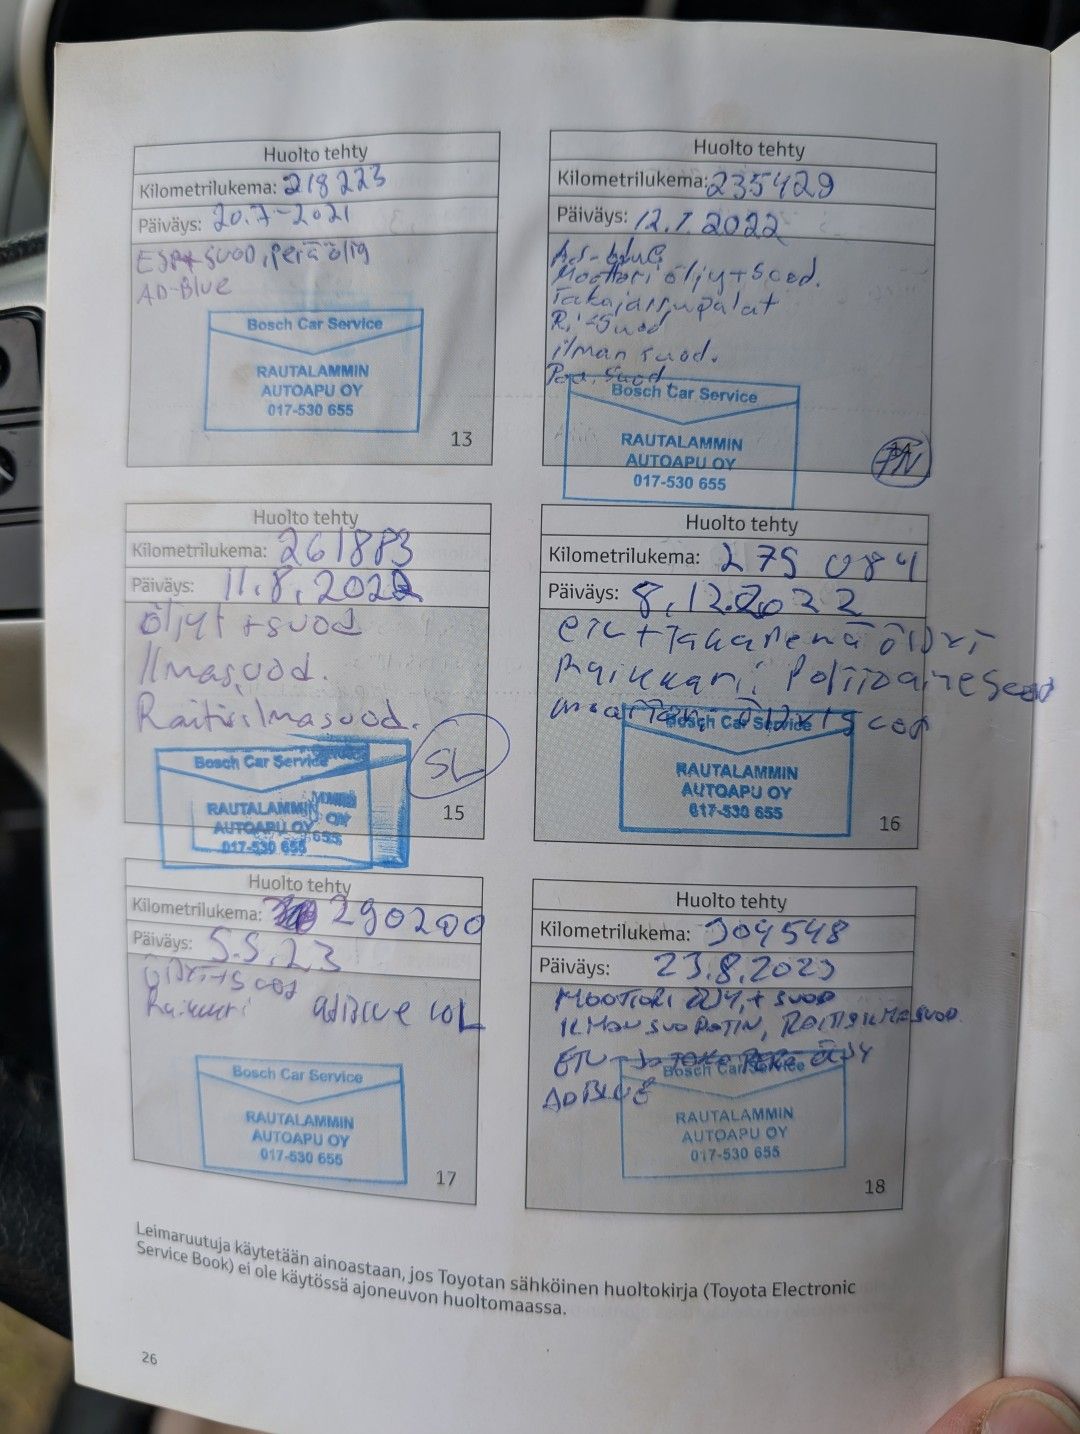 Huolto tehty
Kilometrilukema: 218223
Päiväys: 20.7-2021
suod, perä öljy
AD-Blue
Bosch Car Service
RAUTALAMMIN
AUTOAPU OY
017-530 655
13
Huolto tehty
Kilometrilukema: 235429
Päiväys: 12.1.2022
Ad-blue
Moottori öljy+suod.
Takajarrupalat
Ri-Suod
ilman suod.
Suod
Bosch Car Service
RAUTALAMMIN
AUTOAPU OY
017-530 655
Huolto tehty
Kilometrilukema: 261883
Päiväys: 11.8.2022
öljyt +suod
Ilmasuod.
Raitisilmasuod.
SL
Bosch Car Service
RAUTALAMMIN
AUTOAPU OY
017-530 655
15
Huolto tehty
Kilometrilukema: 275 084
Päiväys: 8.12.2022
etu+takaperä öljyt
Raikkari, Polttoainesuod
Bosch Car Service
RAUTALAMMIN
AUTOAPU OY
017-530 655
16
Huolto tehty
Kilometrilukema: 290200
Päiväys: 5.5.23
Öljyt+suod
Raikkari adblue 10L
Bosch Car Service
RAUTALAMMIN
AUTOAPU OY
017-530 655
17
Huolto tehty
Kilometrilukema: 304548
Päiväys: 23.8.2023
MOOTTORI ÖLJY,+ SUOD
ILMANSUODATIN, RAITISILMASUOD.
ETU- JA TAKA PERÄ ÖLJY
ADBLUE
Bosch Car Service
RAUTALAMMIN
AUTOAPU OY
017-530 655
18
Leimaruutuja käytetään ainoastaan, jos Toyotan sähköinen huoltokirja (Toyota Electronic
Service Book) ei ole käytössä ajoneuvon huoltomaassa.
26